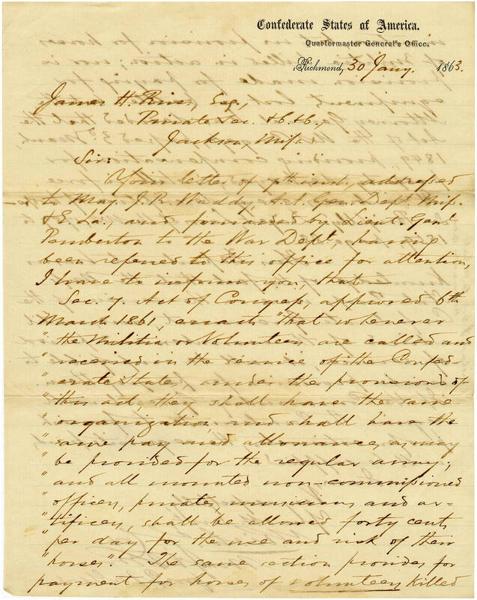 Confederate States of America.
Quartermaster General's Office.
Richmond, 30 Jany. 1863.
James H. Rives, Esq.,
Private Sec. &c. &c.,
Jackson, Miss.
Sir:
Your letter of 7th inst., addressed
to Maj. J. R. Waddy A. A. Gen. Dept. Miss.
& E. La., and forwarded by Lieut. Genl.
Pemberton to the War Dept. having
been referred to this office for attention,
I have to inform you, that
Sec. 7. Act of Congress, approved 6th
March 1861, enacts "that whenever
"the Militia or Volunteers are called and
"received in the service of the Confed
"erate States, under the provisions of
"this act, they shall have the same
"organization and shall have the
"same pay and allowances, as may
"be provided for the regular army;
"and all mounted non-commissioned
"officers, privates, musicians, and ar-
"tificers, shall be allowed forty cents
"per day for the use and risk of their
"horses". The same section provides for
payment for horses of volunteers killed